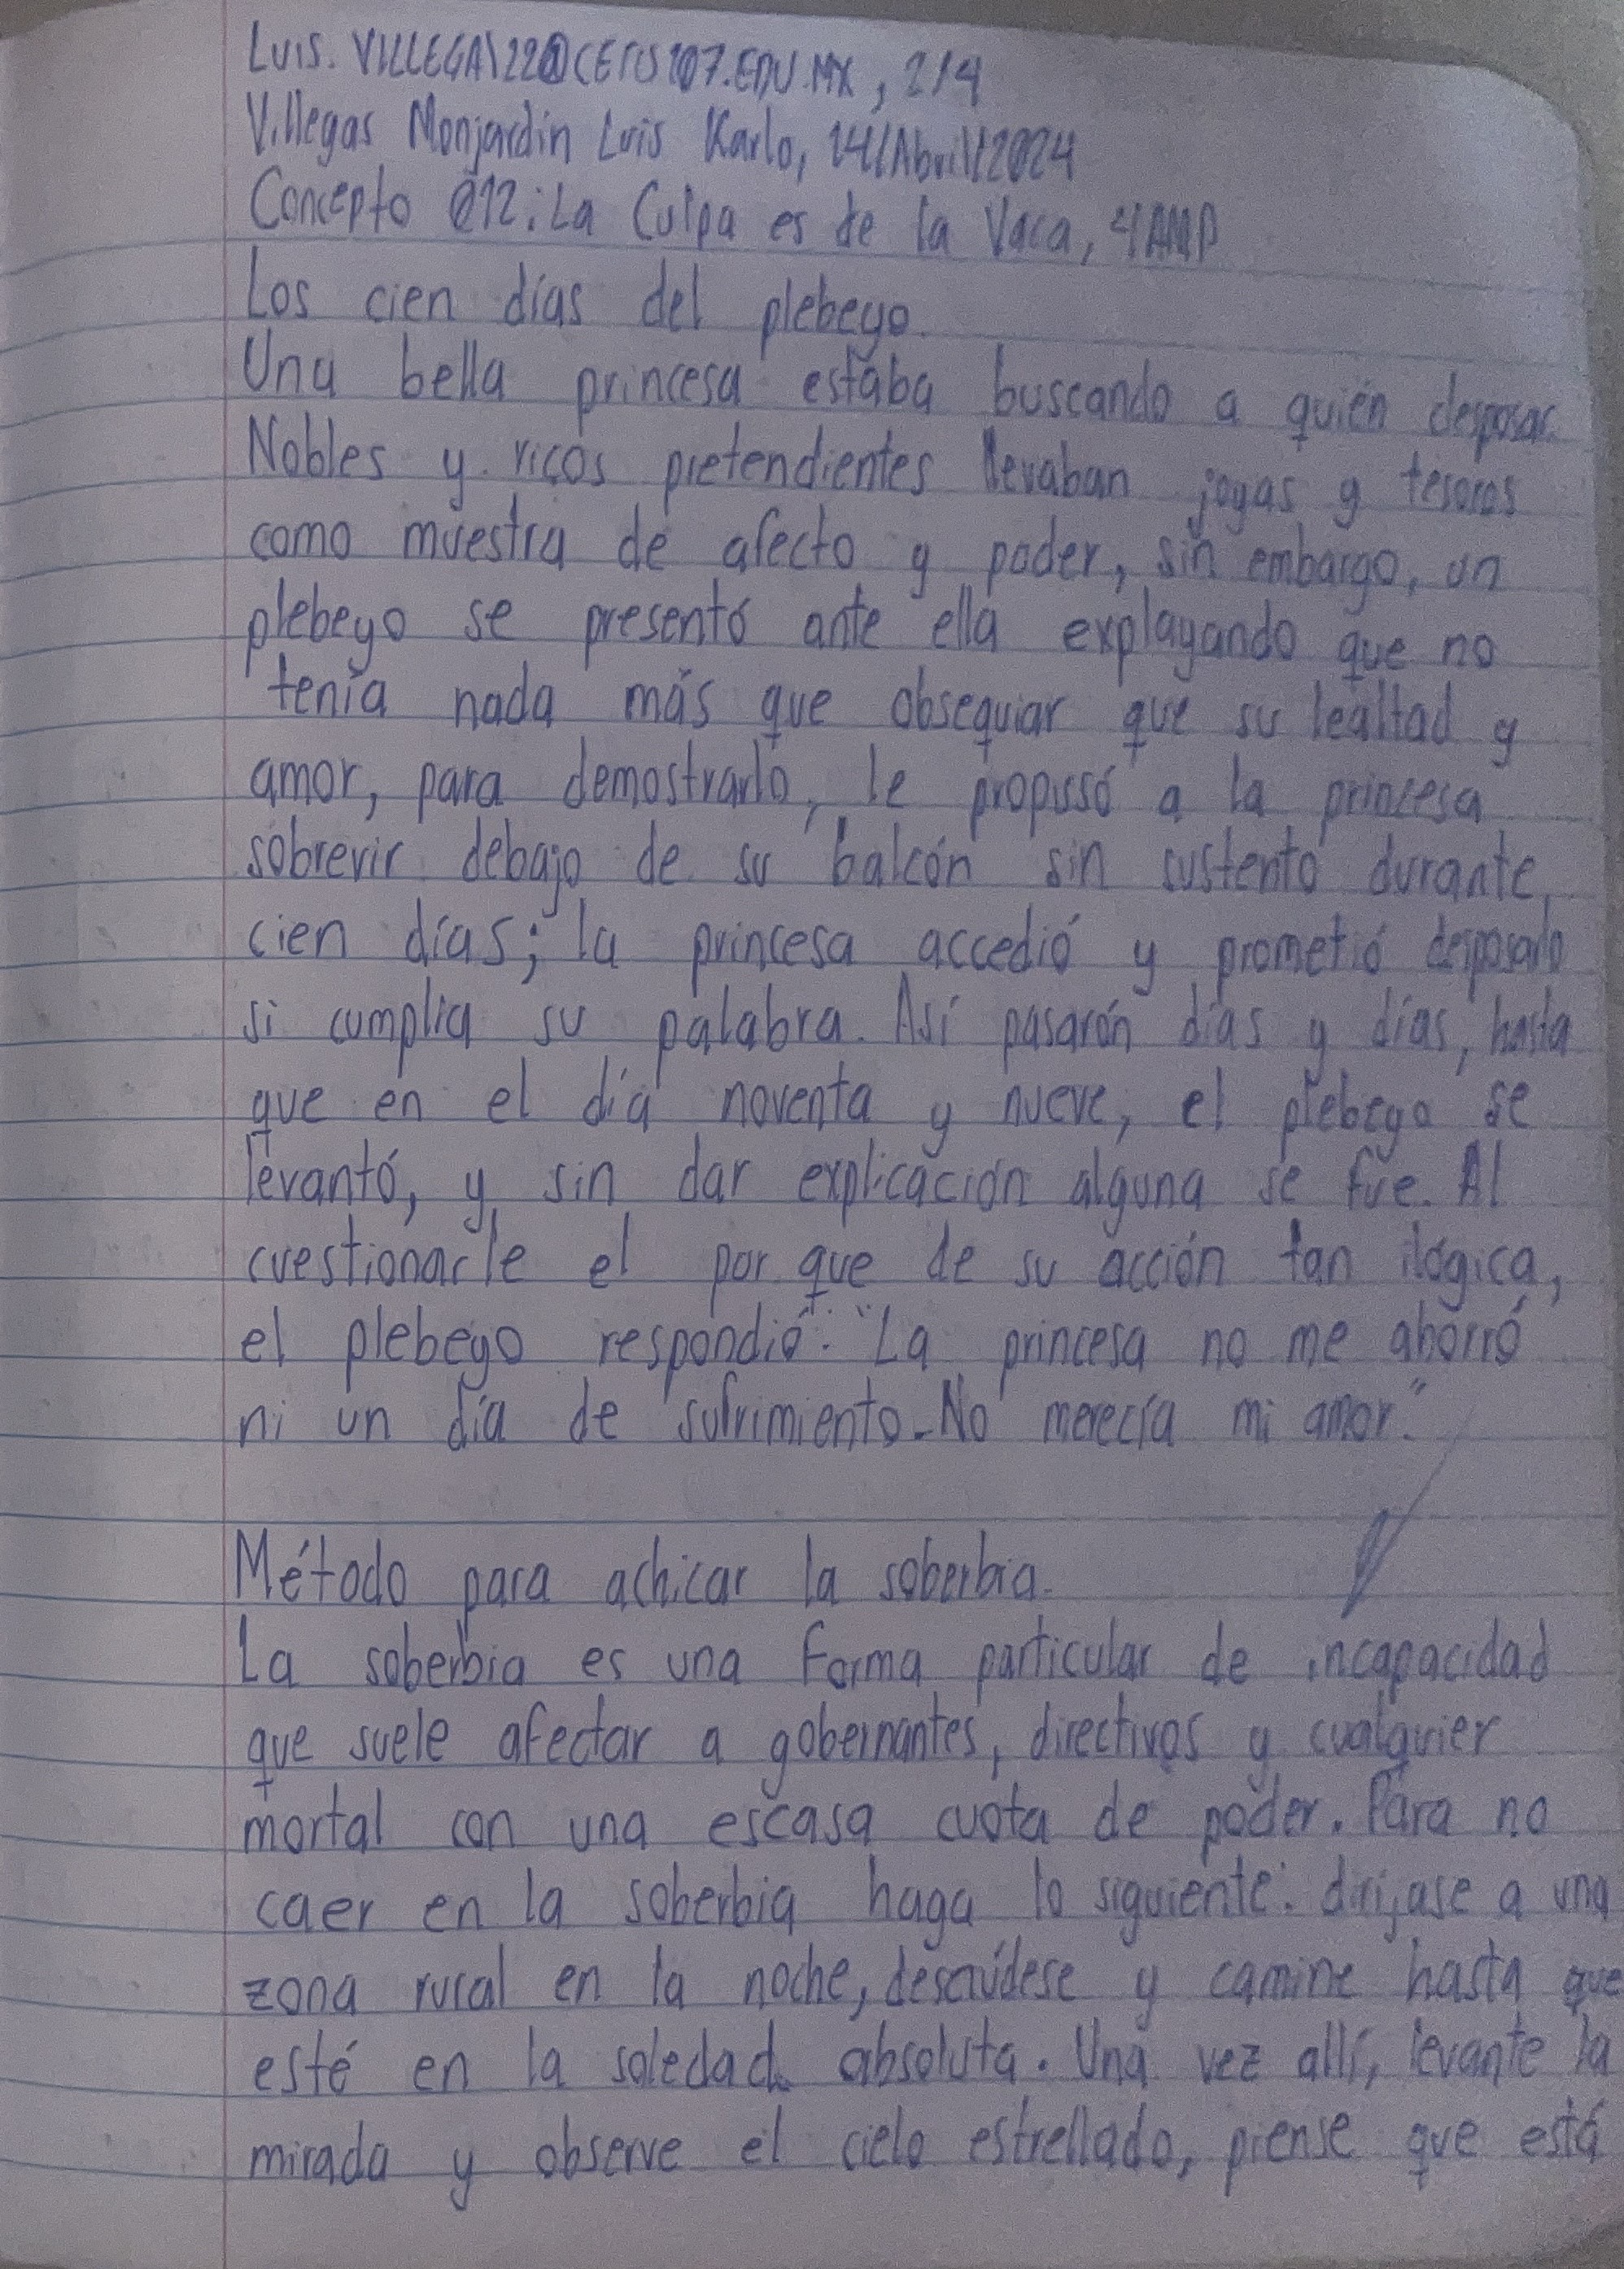 Luis. VILLEGAS22@CETIS107.EDU.MX, 2/4
Villegas Monjardin Luis Karlo, 14/Abril/2024
Concepto 012: La Culpa es de la Vaca, 4AMP
Los cien días del plebeyo.
Una bella princesa estaba buscando a quién desposar.
Nobles y ricos pretendientes llevaban joyas y tesoros
como muestra de afecto y poder, sin embargo, un
plebeyo se presentó ante ella explayando que no
tenía nada más que obsequiar que su lealtad y
amor, para demostrarlo, le propusó a la princesa
sobrevir debajo de su balcón sin sustento durante
cien días; la princesa accedió y prometió desposarlo
si cumplia su palabra. Así pasarón días y días, hasta
que en el día noventa y nueve, el plebeyo se
levantó, y sin dar explicación alguna se fue. Al
cuestionarle el por que de su acción tan ilógica,
el plebeyo respondió: "La princesa no me ahorró
ni un día de sufrimiento. No merecía mi amor."
Método para achicar la soberbia.
La soberbia es una forma particular de incapacidad
que suele afectar a gobernantes, directivos y cualquier
mortal con una escasa cuota de poder. Para no
caer en la soberbia haga lo siguiente: diríjase a una
zona rural en la noche, descuídese y camine hasta que
esté en la soledad absoluta. Una vez allí, levante la
mirada y observe el cielo estrellado, piense que está